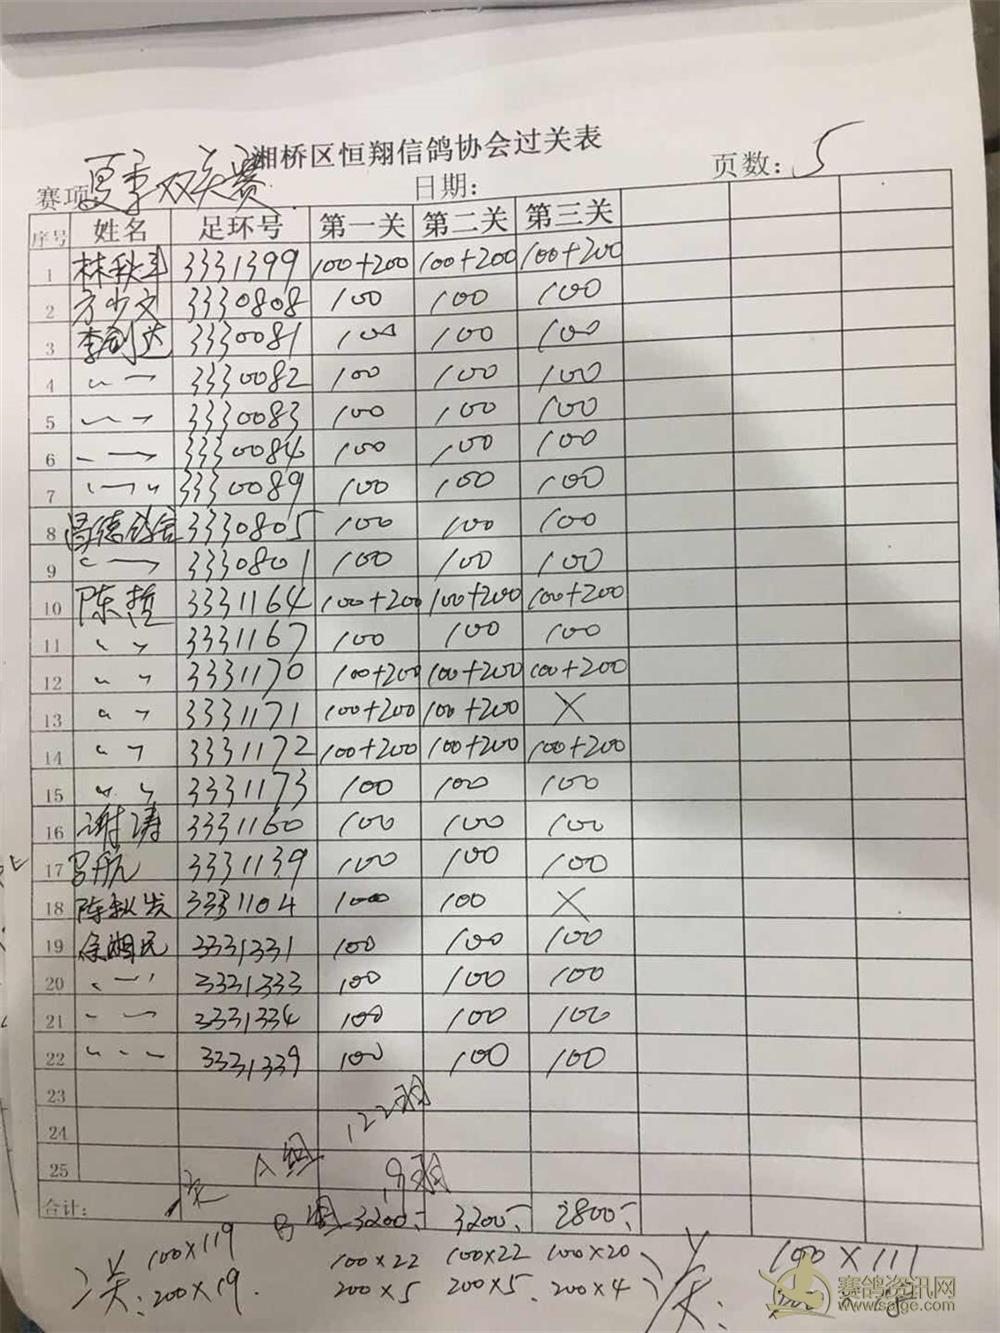 湘桥区恒翔信鸽协会过关表
赛项 夏季双关赛 日期: 页数: 5
序号 姓名 足环号 第一关 第二关 第三关
1 林秋 3331399 100+200 100+200 100+200
2 方少文 3330808 100 100 100
3 李剑达 3330081 100 100 100
4 〃 3330082 100 100 100
5 〃 3330083 100 100 100
6 〃 3330084 100 100 100
7 〃 3330089 100 100 100
8 3330805 100 100 100
9 〃 3330801 100 100 100
10 陈哲 3331164 100+200 100+200 100+200
11 〃 3331167 100 100 100
12 〃 3331170 100+200 100+200 100+200
13 〃 3331171 100+200 100+200 X
14 〃 3331172 100+200 100+200 100+200
15 〃 3331173 100 100 100
16 谢涛 3331160 100 100 100
17 航 3331139 100 100 100
18 陈秋发 3331104 100 100 X
19 湘民 3331331 100 100 100
20 〃 3331333 100 100 100
21 〃 3331334 100 100 100
22 〃 3331339 100 100 100
23
24
25
A组 122羽
B组 19羽
合计: 3200 3200 2800
2关: 100×119 100×22 100×22 100×20 关: 100×111
200×19 200×5 200×5 200×4
赛鸽资讯网
www.saige.com